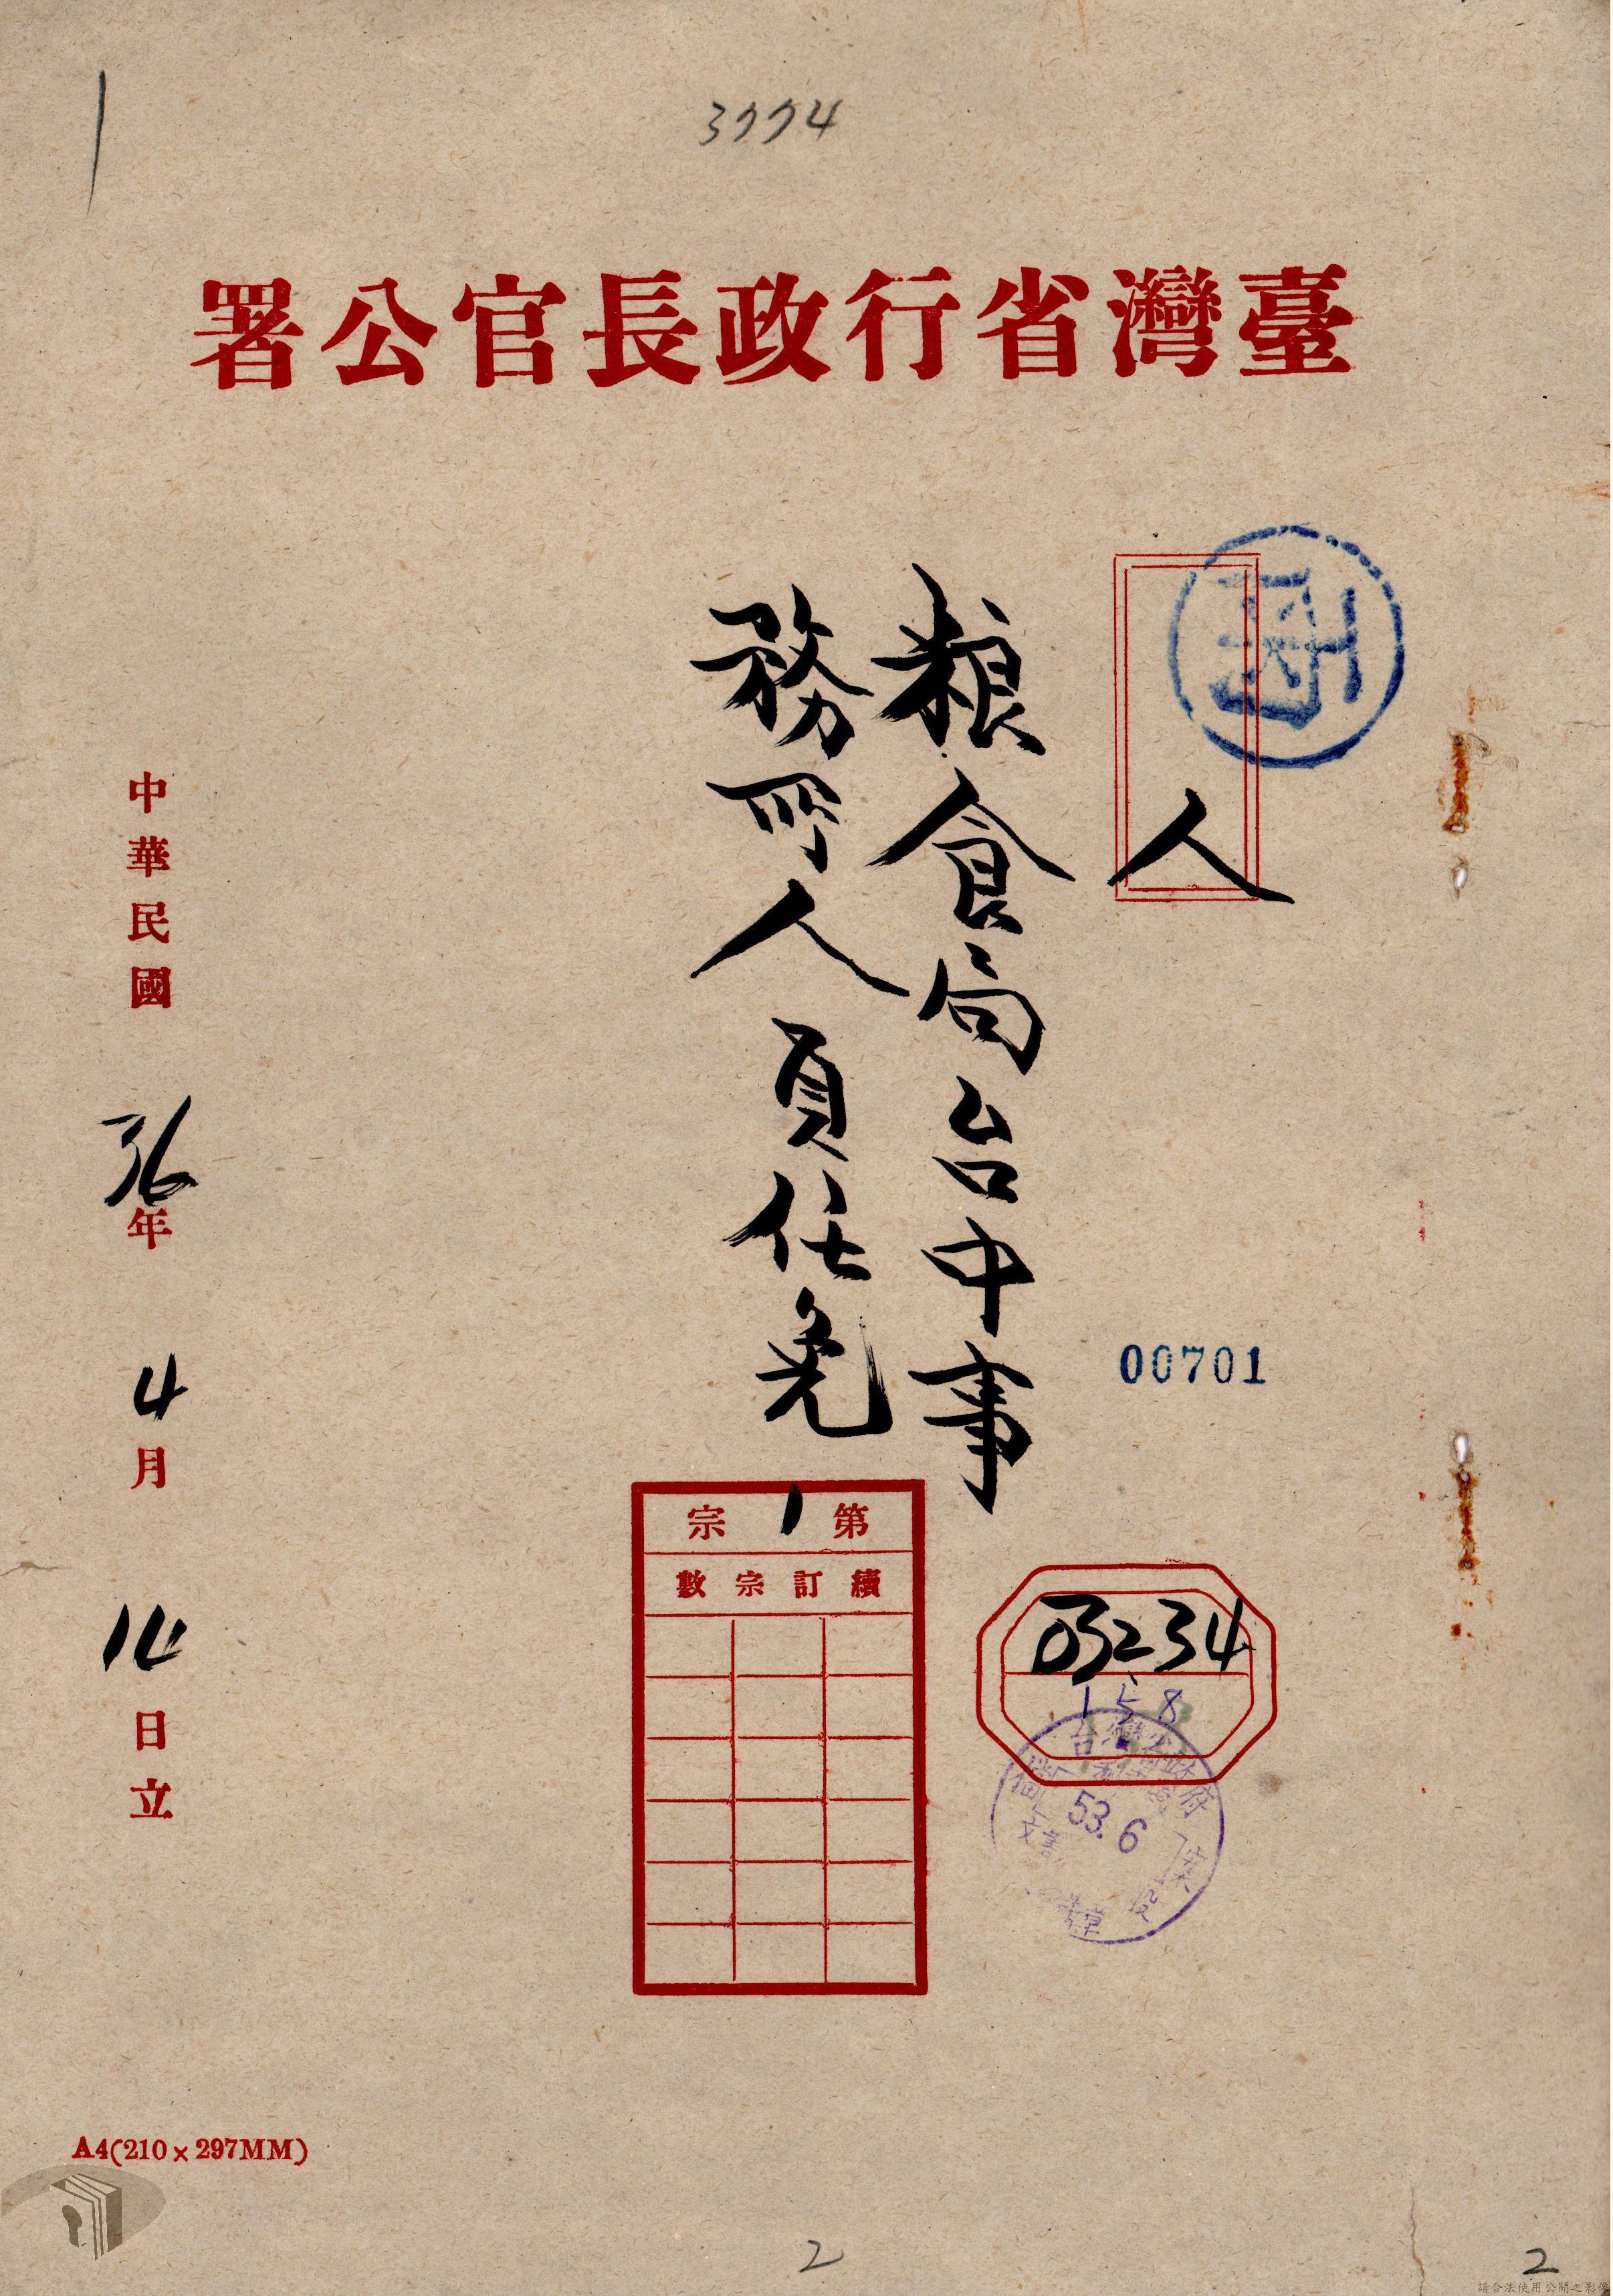 3774
臺灣省行政長官公署
人
粮食局台中事
務所人員任免
00701
第1宗
續訂宗數
03234
158
53.6
中華民國36年4月14日立
A4(210×297MM)
2
2
請合法使用公開之影像